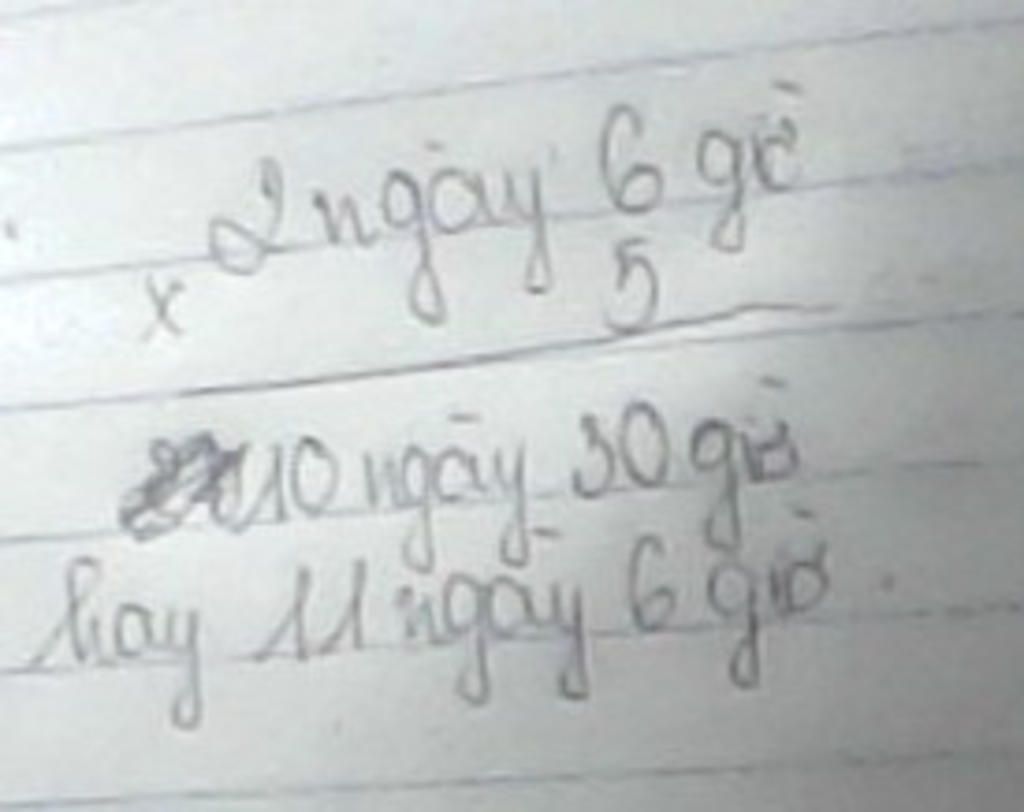 2 ngày 6 giờ
x 5
10 ngày 30 giờ
hay 11 ngày 6 giờ.